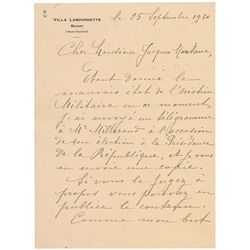 2
VILLA LABOURDETTE
MURET
(HAUTE-GARONNE)
le 25 Septembre 1920
Cher Monsieur Jacques Mortane,
Etant donné le
mauvais état de l'Aviation
Militaire en ce moment,
j'ai envoyé un télégramme
à Mr Millerand à l'occasion
de son élection à la Présidence
de la République, et je vous
en envoie une copie.
Si vous le jugez à
propos vous pouvez en
publier le contenu.
Comme mon but